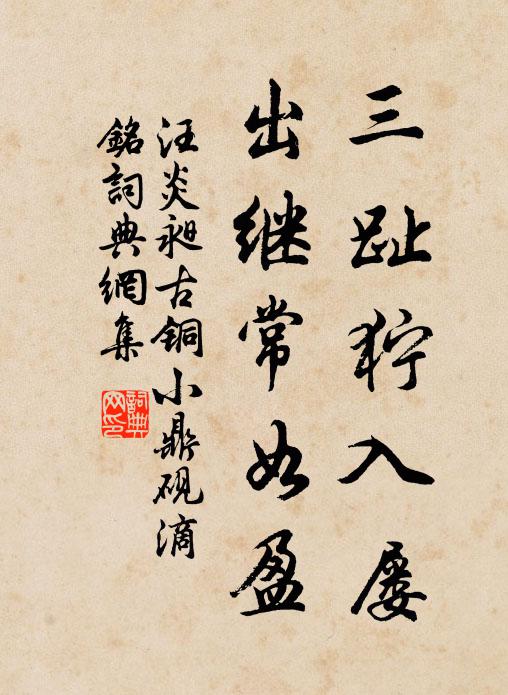 三趾狞入屡
出继常如盈
汪炎昶古铜小鼎砚滴
銘詞典網集
詞典网印